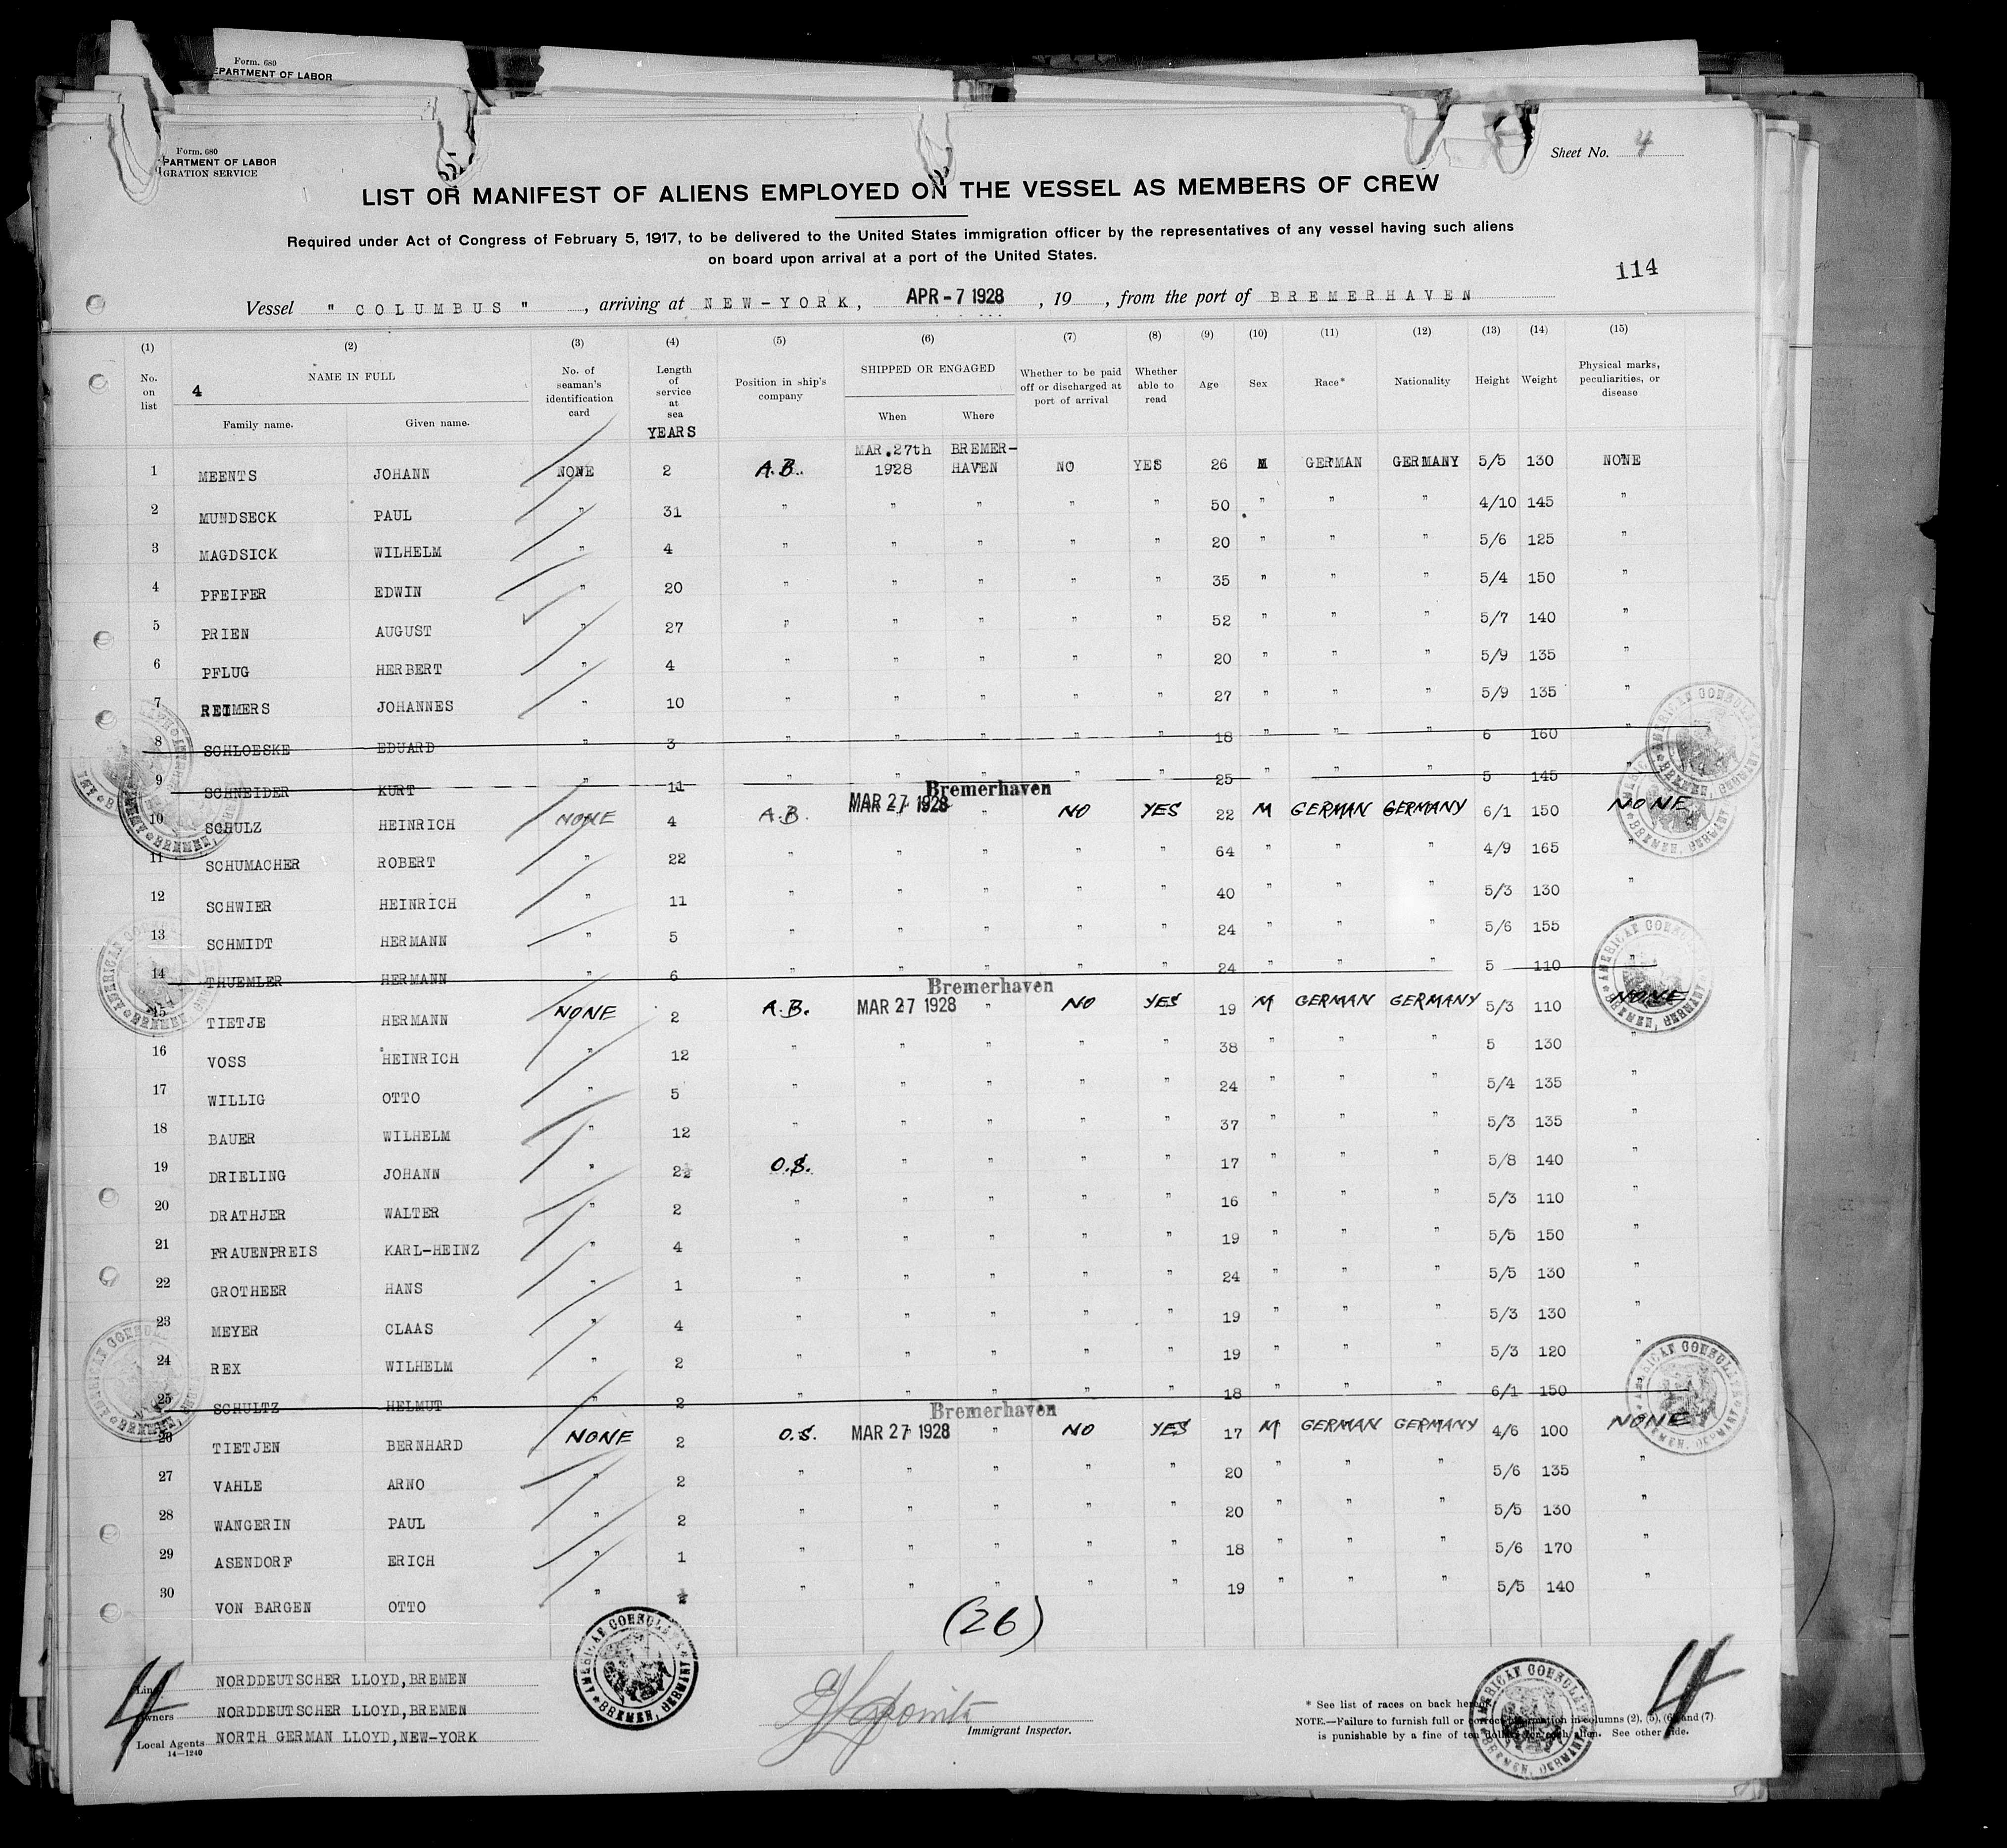 Form. 680
EPARTMENT OF LABOR
Form. 680
PARTMENT OF LABOR
GRATION SERVICE
Sheet No. 4
LIST OR MANIFEST OF ALIENS EMPLOYED ON THE VESSEL AS MEMBERS OF CREW
Required under Act of Congress of February 5, 1917, to be delivered to the United States immigration officer by the representatives of any vessel having such aliens
on board upon arrival at a port of the United States.
114
Vessel " COLUMBUS " , arriving at NEW-YORK, APR-7 1928 , 19 , from the port of BREMERHAVEN
(1) (2) (3) (4) (5) (6) (7) (8) (9) (10) (11) (12) (13) (14) (15)
No. on list 4 NAME IN FULL Family name. Given name. No. of seaman's identification card Length of service at sea YEARS Position in ship's company SHIPPED OR ENGAGED When Where Whether to be paid off or discharged at port of arrival Whether able to read Age Sex Race* Nationality Height Weight Physical marks, peculiarities, or disease
1 MEENTS JOHANN NONE 2 A.B. MAR.27th 1928 BREMER-HAVEN NO YES 26 M GERMAN GERMANY 5/5 130 NONE
2 MUNDSECK PAUL " 31 " " " " " 50 " " " 4/10 145 "
3 MAGDSICK WILHELM " 4 " " " " " 20 " " " 5/6 125 "
4 PFEIFER EDWIN " 20 " " " " " 35 " " " 5/4 150 "
5 PRIEN AUGUST " 27 " " " " " 52 " " " 5/7 140 "
6 PFLUG HERBERT " 4 " " " " " 20 " " " 5/9 135 "
7 REIMERS JOHANNES " 10 " " " " " 27 " " " 5/9 135 "
8 SCHLOESKE EDUARD " 3 " " " " " 18 " " " 6 160 "
9 SCHNEIDER KURT " 11 " " " " " 25 " " " 5 145 "
10 SCHULZ HEINRICH NONE 4 A.B. MAR 27 1928 Bremerhaven " NO YES 22 M GERMAN GERMANY 6/1 150 NONE
11 SCHUMACHER ROBERT " 22 " " " " " 64 " " " 4/9 165 "
12 SCHWIER HEINRICH " 11 " " " " " 40 " " " 5/3 130 "
13 SCHMIDT HERMANN " 5 " " " " " 24 " " " 5/6 155 "
14 THUEMLER HERMANN " 6 " " " " " 24 " " " 5 110 "
15 TIETJE HERMANN NONE 2 A.B. MAR 27 1928 Bremerhaven " NO YES 19 M GERMAN GERMANY 5/3 110 NONE
16 VOSS HEINRICH " 12 " " " " " 38 " " " 5 130 "
17 WILLIG OTTO " 5 " " " " " 24 " " " 5/4 135 "
18 BAUER WILHELM " 12 " " " " " 37 " " " 5/3 135 "
19 DRIELING JOHANN " 2½ O.S. " " " " 17 " " " 5/8 140 "
20 DRATHJER WALTER " 2 " " " " " 16 " " " 5/3 110 "
21 FRAUENPREIS KARL-HEINZ " 4 " " " " " 19 " " " 5/5 150 "
22 GROTHEER HANS " 1 " " " " " 24 " " " 5/5 130 "
23 MEYER CLAAS " 4 " " " " " 19 " " " 5/3 130 "
24 REX WILHELM " 2 " " " " " 19 " " " 5/3 120 "
25 SCHULTZ HELMUT " 2 " " " " " 18 " " " 6/1 150
26 TIETJEN BERNHARD NONE 2 O.S. MAR 27 1928 Bremerhaven " NO YES 17 M GERMAN GERMANY 4/6 100 NONE
27 VAHLE ARNO " 2 " " " " " 20 " " " 5/6 135 "
28 WANGERIN PAUL " 2 " " " " " 20 " " " 5/5 130 "
29 ASENDORF ERICH " 1 " " " " " 18 " " " 5/6 170 "
30 VON BARGEN OTTO " " " " " " 19 " " " 5/5 140 "
(26)
4 4
Line NORDDEUTSCHER LLOYD,BREMEN
Owners NORDDEUTSCHER LLOYD,BREMEN
Local Agents NORTH GERMAN LLOYD,NEW-YORK
14—1240
Immigrant Inspector.
* See list of races on back hereof.
NOTE.—Failure to furnish full or correct information in columns (2), (5), (6) and (7)
is punishable by a fine of ten dollars for each alien. See other side.
AMERICAN CONSULATE BREMEN, GERMANY